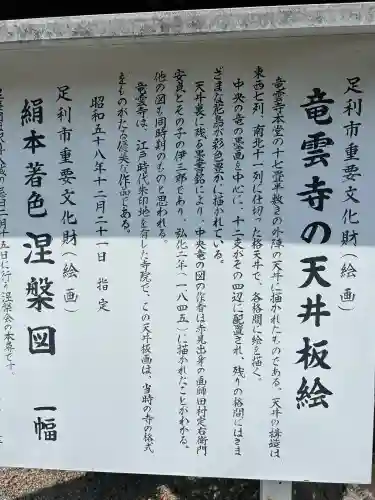 足利市重要文化財(絵画)
竜雲寺の天井板絵
竜雲寺本堂の十七畳半敷きの外陣の天井に描かれたものである。天井の構造は
東西七列、南北十一列に仕切った格天井で、各格間に絵を描く。
中央の竜の雲画を中心に、十二支がその四辺に配置され、残りの格間にはさま
ざまな花鳥が彩色豊かに描かれている。
天井裏に残る墨書銘により、中央竜の図の作者は赤見出身の画師田村定右衛門
安貞とその子の伊三郎であり、弘化二年(一八四五)に描かれたことがわかる。
他の図も同時期のものと思われる。
竜雲寺は、江戸時代朱印地を有した寺院で、この天井板画は、当時の寺の格式
をものがたる優美な作品である。
昭和五十八年十二月二十一日 指定
足利市重要文化財(絵画)
絹本著色 涅槃図 一幅
二月十五日に行う涅槃会の本尊です。